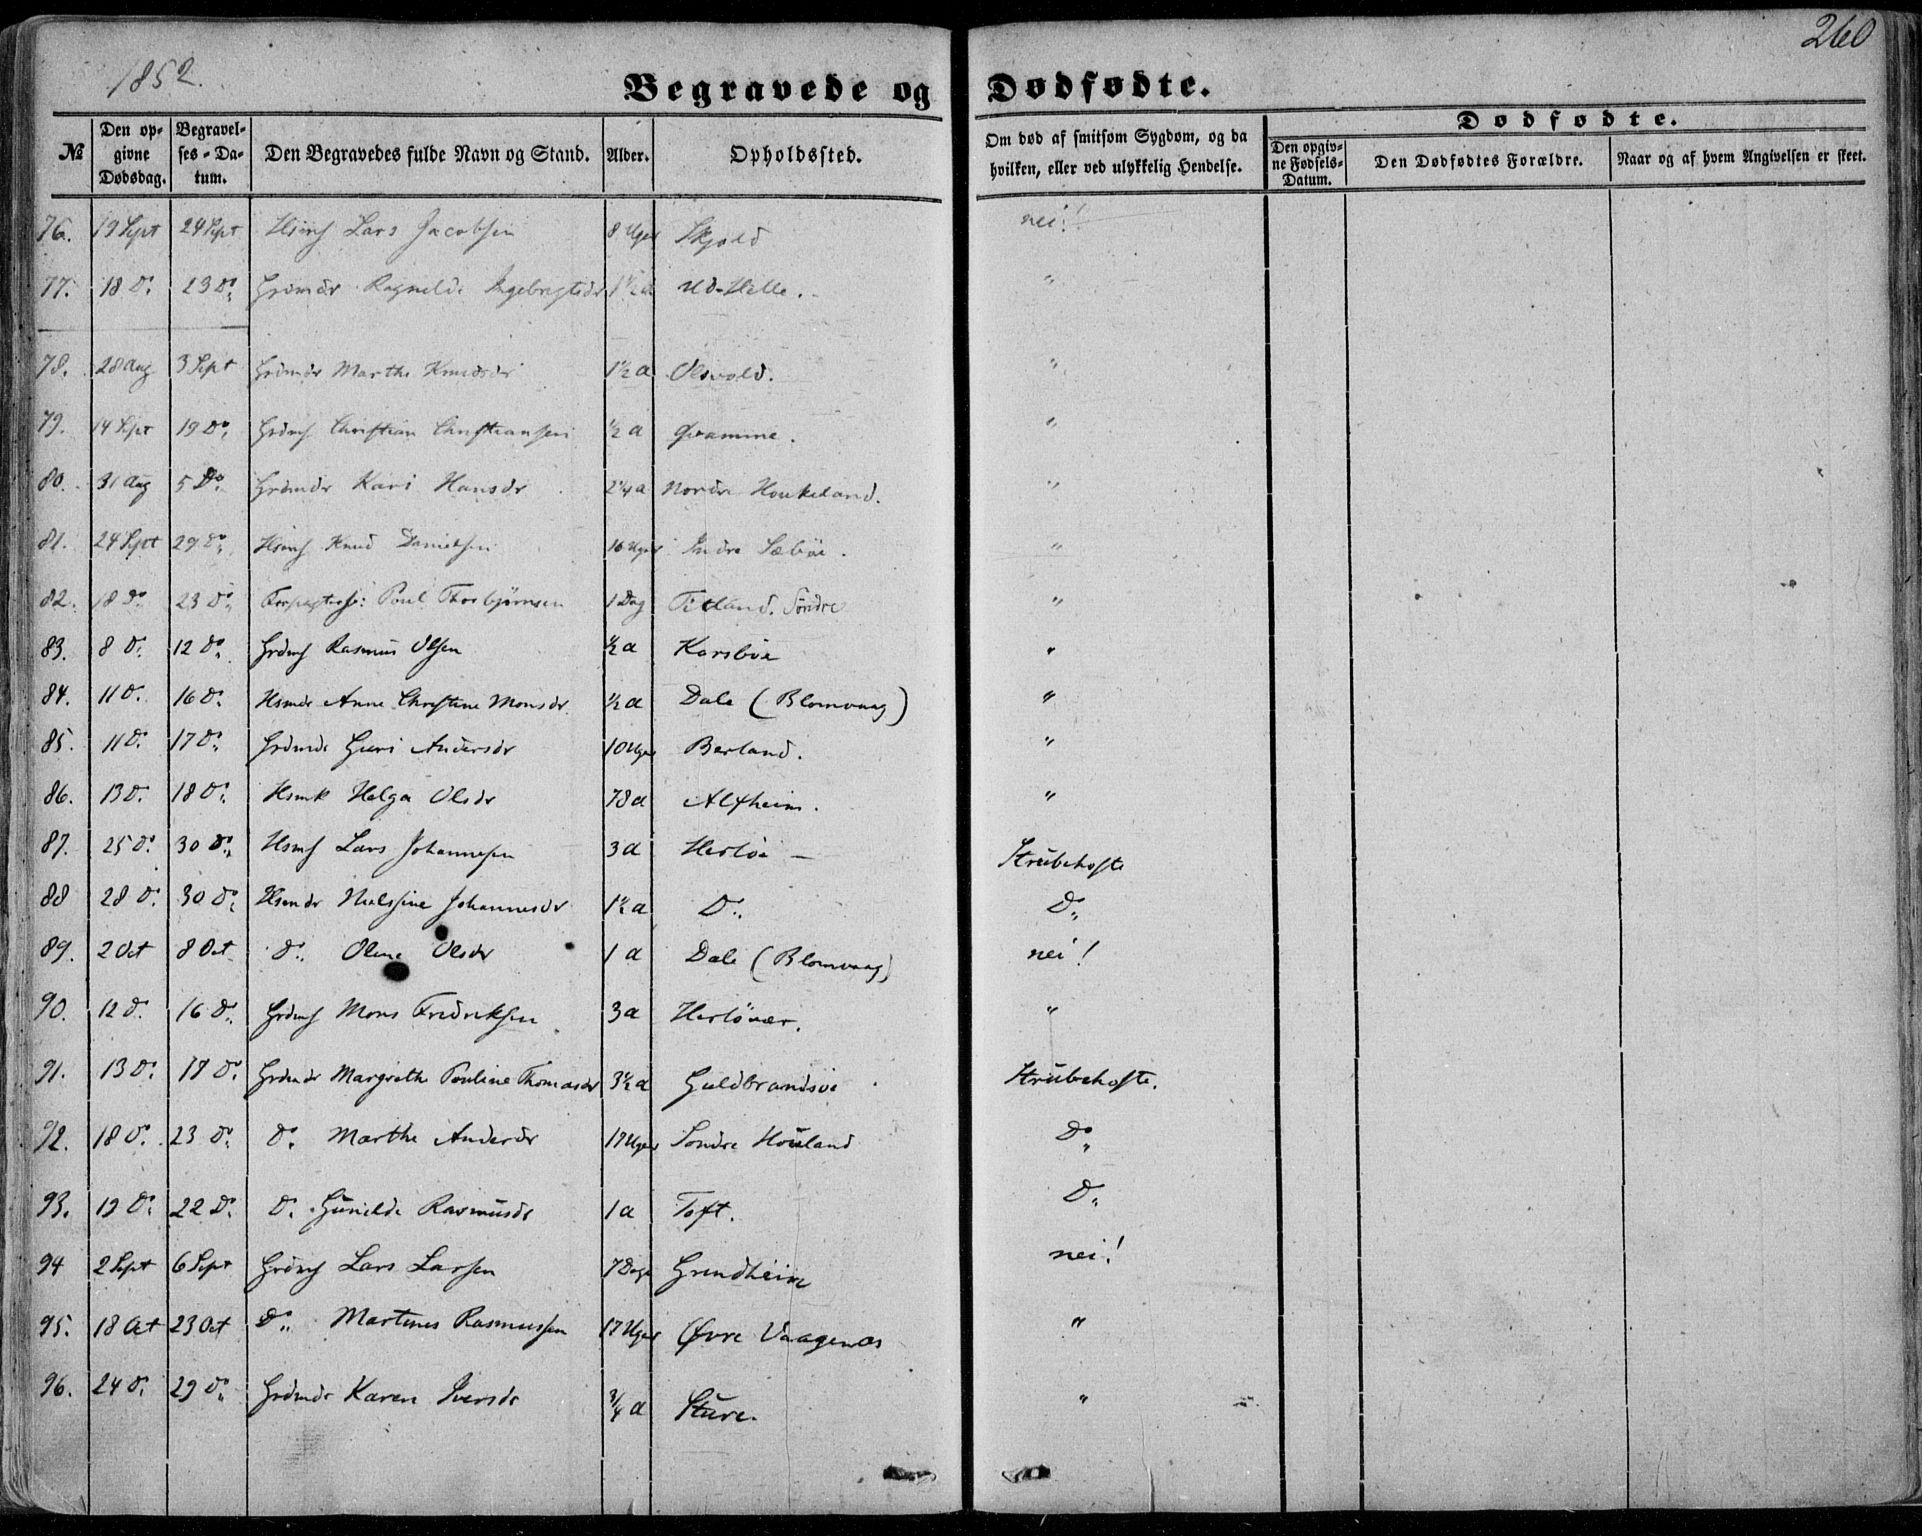 260
1852.
Begravede og Dødfødte.
№ | Den opgivne Dødsdag. | Begravelses-Datum. | Den Begravedes fulde Navn og Stand. | Alder. | Opholdssted. | Om død af smitsom Sygdom, og da hvilken, eller ved ulykkelig Hendelse. | Dødfødte. | Den opgivne Fødsels-Datum. | Den Dødfødtes Forældre. | Naar og af hvem Angivelsen er skeet.
76. 19 Sept 24 Sept Hsmf Lars Jacobsen 8 Uger Skjold nei!
77. 18 Do 23 Do Grdmdr Ragnilde Ingebrigtsdr 1½ a Ud-Helle. "
78. 28 Aug 3 Sept Grdmdr Marthe Knudsdr 1½ a Olsvold. "
79. 14 Sept 19 Do Grdmf Christian Christiansen ½ a Qvamme. "
80. 31 Aug 5 Do Grdmdr Kari Hansdr 2¼ a Nordre Houkeland. "
81. 24 Sept 29 Do Hsmf Knud Danielsen 16 Uger Indre Sæbøe. "
82. 18 Do 23 Do Poul Thorbjørnsen 1 Dag Titland. Söndre "
83. 8 Do 12 Do Grdmf Rasmus Olsen ½ a Karsbøe "
84. 11 Do 16 Do Hsmdr Anne Christine Monsdr ½ a Dale (Blomvaag) "
85. 11 Do 17 Do Grdmdr Guri Andersdr 10 Uger Berland. "
86. 13 Do 18 Do Hsmk Helga Olsdr 78 a Alfheim. "
87. 25 Do 30 Do Hsmf Lars Johannesen 3 a Herløe — Strubehoste
88 28 Do 30 Do Hsmdr Nielsine Johannesdr 1½ a Do Do
89. 2 Oct 8 Oct Do Olene Olsdr 1 a Dale (Blomvaag) nei!
90. 12 Do 16 Do Grdmf Mons Fredriksen 3 a Herlövær. "
91. 13 Do 17 Do Grdmdr Margrethe Pouline Thomasdr 3½ a Guldbrandsöe Strubehoste.
92. 18 Do 23 Do Do Marthe Andersdr 17 Uger Sondre Houland Do
93. 19 Do 22 Do Do Gunilde Rasmusdr 1 a Toft. Do
94 2 Sept 6 Sept Grdmf Lars Larsen 7 Dage Grendheim nei!
95. 18 Oct 23 Oct Do Martines Rasmussen 17 Uger Øvre Vaagenæs "
96. 24 Do 29 Do Grdmdr Karen Iversdr ¾ a Sture. "